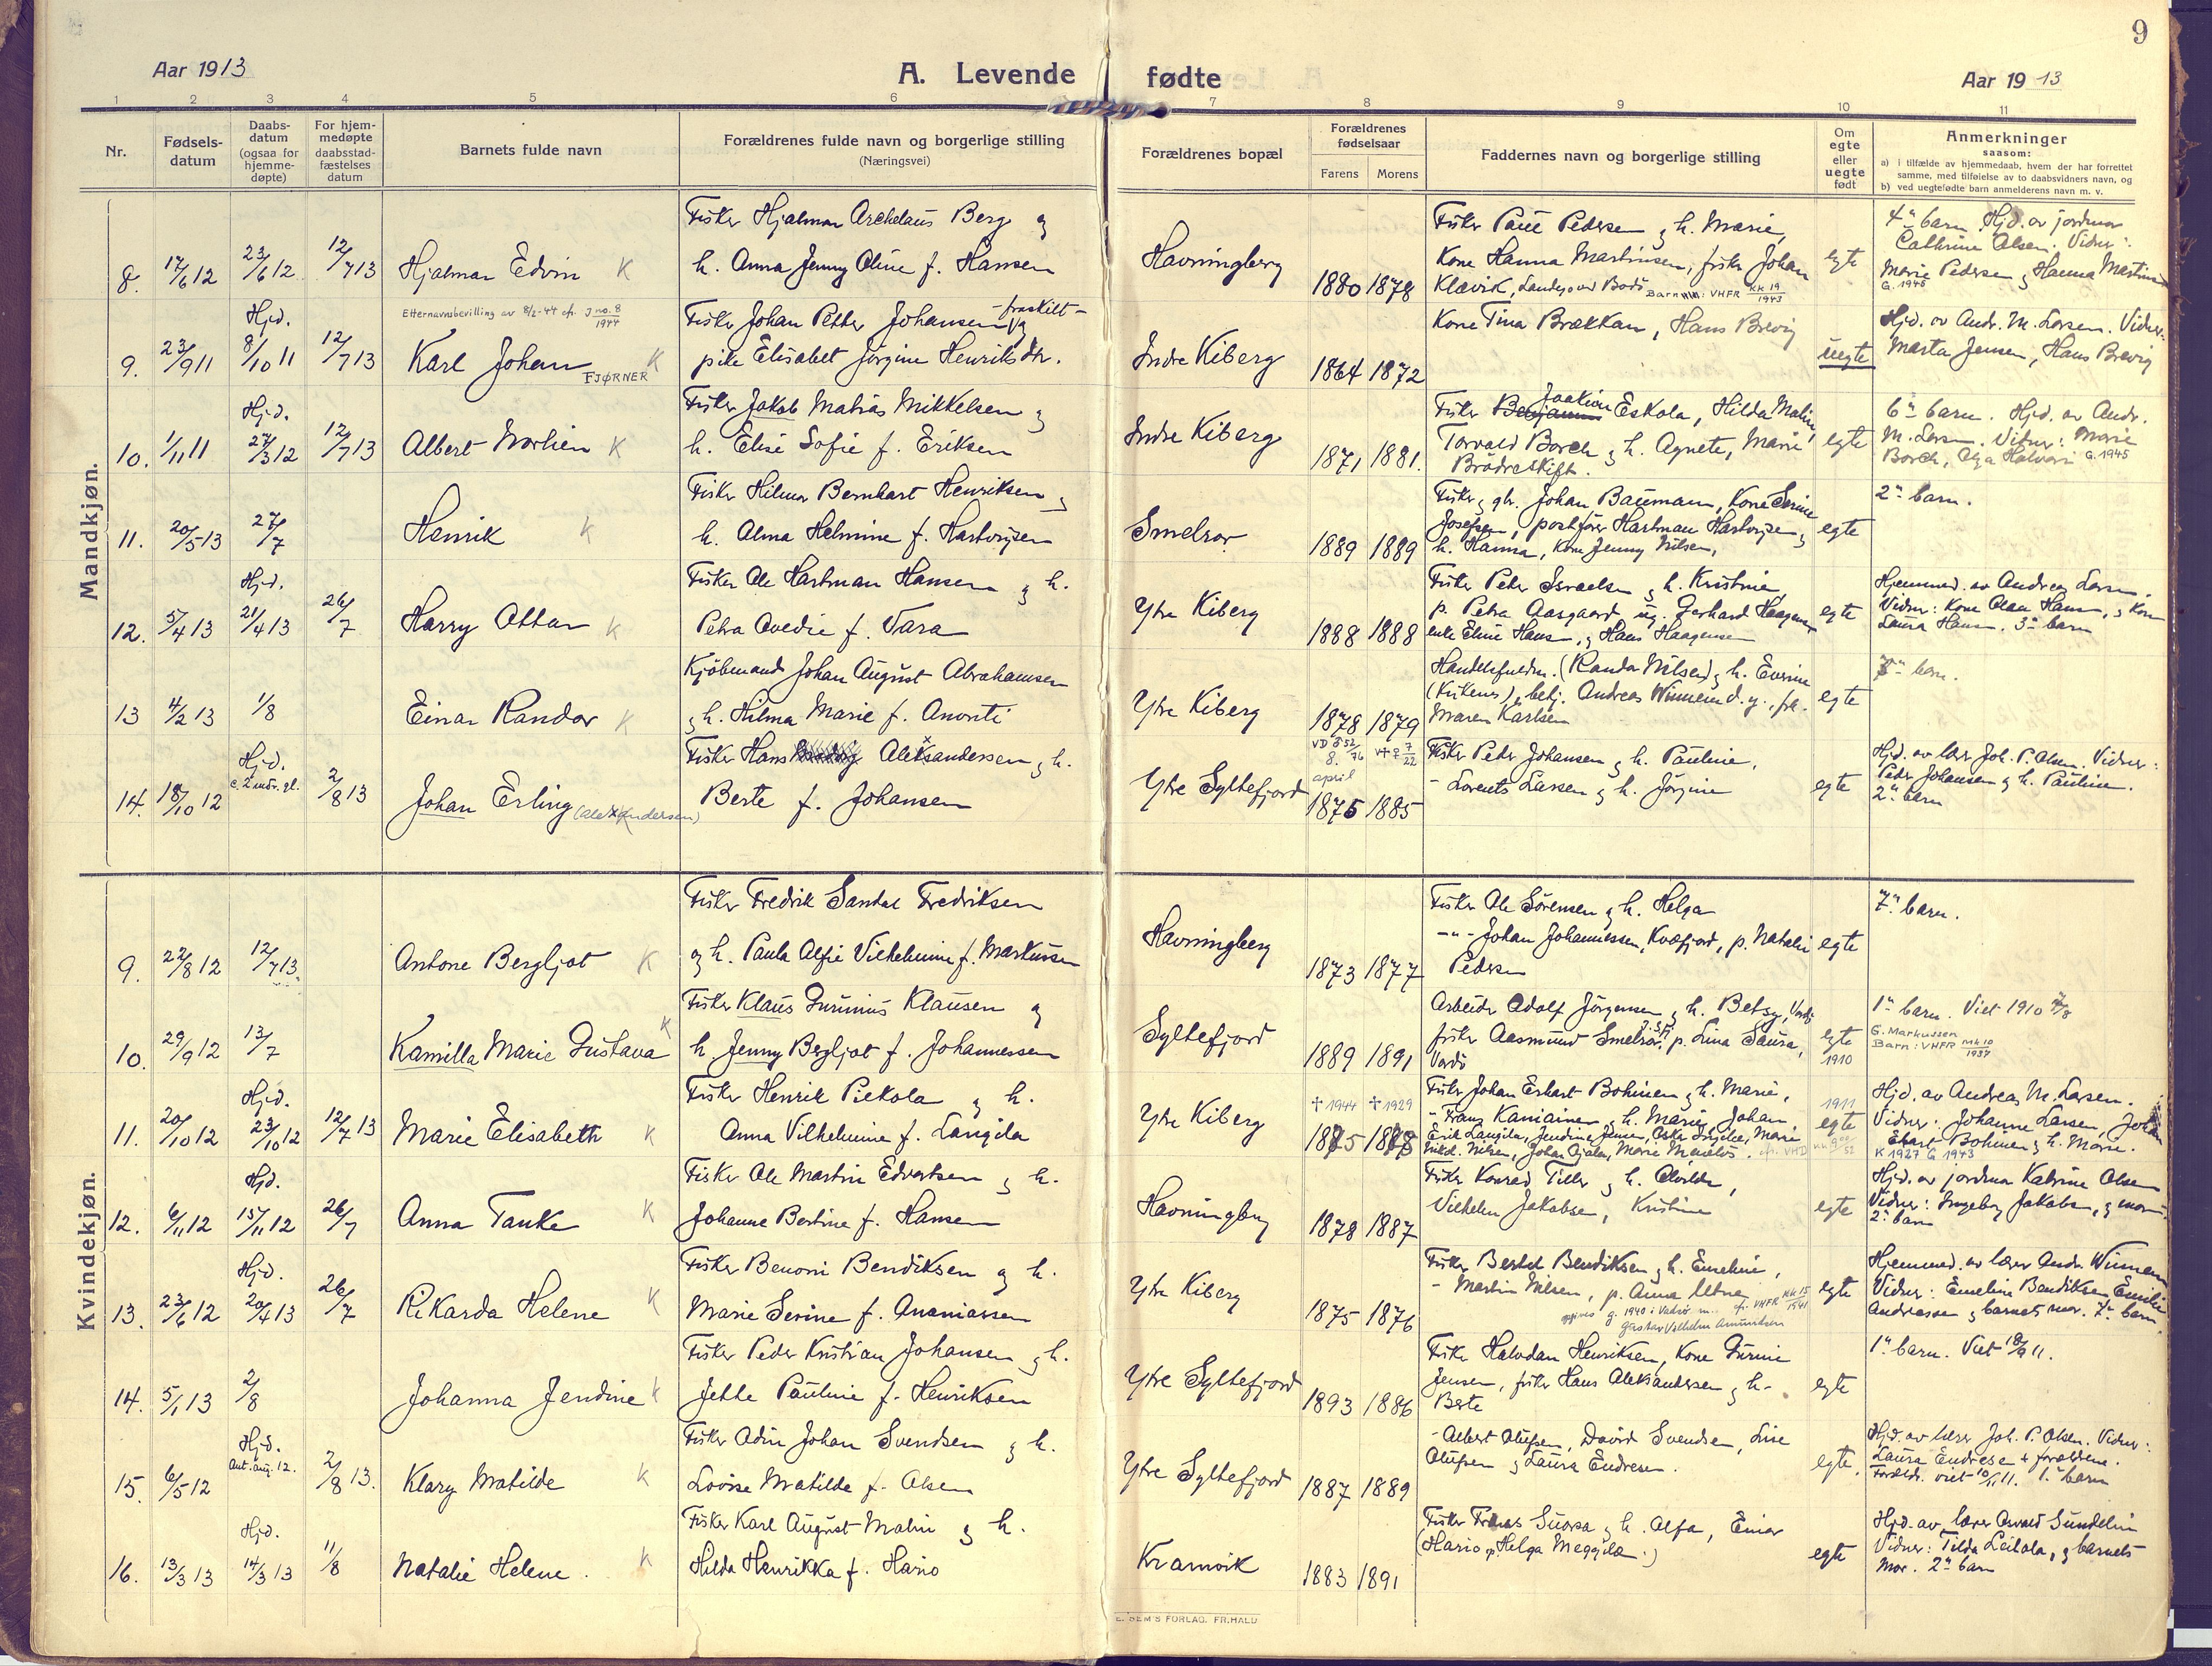 9
Aar 1913
A. Levende fødte
Aar 1913
1 2 3 4 5 6 7 8 9 10 11
Nr.
Fødsels-
datum
Daabs-
datum
(ogsaa for
hjemme-
døpte)
For hjem-
medøpte
daabsstad-
fæstelses
datum
Barnets fulde navn
Forældrenes fulde navn og borgerlige stilling
(Næringsvei)
Forældrenes bopæl
Forældrenes
fødselsaar
Farens Morens
Faddernes navn og borgerlige stilling
Om
egte
eller
uegte
født
Anmerkninger
saasom:
a) i tilfælde av hjemmedaab, hvem der har forrettet
samme, med tilføielse av to daabsvidners navn, og
b) ved uegtefødte barn anmelderens navn m. v.
Mandkjøn.
8. 17/6 12 23/6 12 12/7 13 Hjalmar Edvin K
Fisker Hjalmar Archelaus Berg og
h. Anna Jenny Oline f. Hansen
Havningberg 1880 1878
Fisker Paul Pedersen og h. Marie,
Kone Hanna Martinsen, fisker Johan
Klævik, Landego ved Bodö Barn: VHFR KK 19/1943
egte
4de barn. Hjd. av jordmor
Cathrine Olsen. Vidner:
Marie Pedersen og Hanna Martins
G. 1945
Etternavnsbevilling av 8/2-44 cfr. J no. 8/1944
9. 23/9 11 Hjd. 8/10 11 12/7 13 Karl Johan K
FJØRNER
Fisker Johan Petter Johansen -fraskilt- og
pike Elisabet Jørgine Henriksdtr.
Indre Kiberg 1864 1872
Kone Tina Brækkan, Hans Brevig
uegte
Hjd. av Andr. M. Larsen. Vidner:
Marta Jensen, Hans Brevig
10. 1/11 11 Hjd. 27/3 12 12/7 13 Albert Norhien K
Fisker Jakob Matias Mikkelsen og
h. Elise Sofie f. Eriksen
Indre Kiberg 1871 1881.
Fisker Benjamin Joakim Eskola, Hilda Malin,
Torvald Borch og h. Agnete, Marie
Brödreskift.
egte
6te barn. Hjd. av Andr.
M. Larsen. Vidner: Marie
Borch, Olga Halvari G. 1945
11. 20/5 13 27/7 Henrik K
Fisker Hilmar Bernhart Henriksen og
h. Alma Helmine f. Hartvigsen
Smelror 1889 1889
Fisker og gbr. Johan Baumann, Kone Serine
Josefsen, postfører Hartman Hartvigsen og
h. Hanna, Kone Jenny Nilsen,
egte
2det barn.
12. 5/4 13 Hjd. 21/4 13 26/7 Harry Ottar K
Fisker Ole Hartman Hansen og h.
Petra Ovedie f. Vara
Ytre Kiberg 1888 1888
Fisker Peter Israelsen og h. Kristine,
p. Petra Aasgaard, ug. Gerhard Haagensen
enke Eline Hansen, og Hans Haagensen
egte
Hjemmed. av Andreas Larsen.
Vidner: Kone Olaa Hansen, og Kone
Laura Hansen. 3die barn
13 4/2 13 1/8 Einar Randor K
Kjöbmand Johan August Abrahamsen
og h. Hilma Marie f. Anonti
Ytre Kiberg 1878 1879
Handelsfuldm. (Randa Nilsen) og h. Everine
(Kirkenes), betj. Andreas Winnem d.y., frk.
Maren Karlsen
egte
barn.
14. 18/10 12 Hjd. c. 2 mdr. gl. 2/8 13 Johan Erling (Alexandersen)
Fisker Hans Aleksandersen og h.
Berte f. Johansen
Ytre Syltefjord 8. april 1876 1885
Fisker Peder Johansen og h. Pauline,
- Lorents Larsen og h. Jørgine
egte
Hjd. av lærer Joh. P. Olsen. Vidner:
Peder Johansen og h. Pauline.
2det barn
Kvindekjøn.
9. 22/8 12 12/7 13 Antone Bergljot K
Fisker Fredrik Sandal Fredriksen
og h. Paula Alfie Vilhelmine f. Markussen
Havningberg 1873 1877
Fisker Ole Sörensen og h. Helga
-"- Johan Johannessen, Kvæfjord, p. Natalie
Pedersen
egte
7de barn.
10. 29/9 12 13/7 Kamilla Marie Gustava K
Fisker Klaus Gunnius Klausen og
h. Jenny Bergljot f. Johannessen
Syltefjord 1889 1891
Arbeider Adolf Jørgensen og h. Betsy, Vardö
fisker Aasmund Smelror, p. Lina Saura,
Vardö
egte
1910
1ste barn. Viet 1910
G. Markussen
Barn: VHFR MK 10/1937
11. 20/10 12 Hjd. 23/10 12 12/7 13 Marie Elisabeth K
Fisker Henrik Piekola og h.
Anna Vilhelmine f. Langila
Ytre Kiberg † 1944 † 1929
1875 1878
Fisker Johan Erhart Bohinen og h. Marie,
- Franz Kaniainen og h. Maria, Johan
1911
egte
Hjd. av Andreas M. Larsen.
Vidner: Johanne Larsen, Johan
Ehart Bohinen og h. Marie.
K 1927 G 1943
12. 6/11 12 Hjd. 15/11 12 26/7 Anna Tanke K
Fisker Ole Martin Edvartsen og h.
Johanne Bertine f. Hansen
Havningberg 1878 1887
Fisker Konrad Tiller og h. Alvilde,
Vilhelm Jakobsen, Kristine
egte
Hjd. av jordmor Katrine Olsen
Vidner: Ingeborg Jakobsen, og moren.
2det barn
13. 23/6 12 Hjd. 20/4 13 26/7 Rikarda Helene K
Fisker Benoni Bendiksen og h.
Marie Serine f. Ananiassen
Ytre Kiberg 1875 1876
Fisker Bertel Bendiksen og h. Emeline,
- Martin Nilsen, p. Anna Utne
g. 1940 i Vadsø m. cfr. VHFR KK 15/1941
Gustav Vilhelm Amundsen
egte
Hjemmed. av lærer Andr. Winnem
Vidner: Emeline Bendiksen, Emilie
Andreassen og barnets mor. 7de barn.
14. 5/1 13 2/8 Johanna Jendine K
Fisker Peder Kristian Johansen og h.
Jette Pauline f. Henriksen
Ytre Syltefjord 1893 1886
Fisker Halvdan Henriksen, Kone Gurine
Jensen, fisker Hans Aleksandersen og h.
Berte
egte
1ste barn. Viet 18/9 11.
15. 6/5 12 Hjd. Ant. aug. 12. 2/8 13. Klary Matilde K
Fisker Adin Johan Svendsen og h.
Lovise Matilde f. Olsen
Ytre Syltefjord 1887 1889
- Albert Olufsen, David Svendsen, Lise
Olufsen og Laura Endresen.
egte.
Hjd. av lærer Joh. P. Olsen. Vidner:
Laura Endresen + forældrene.
Forældr. viet 10/11 11. 1ste barn
16. 13/3 13 Hjd. 14/3 13 11/8 Natalie Helene. K
Fisker Karl August Malin og h.
Hilda Henrikka f. Hario
Kramvik 1883 1891
Fisker Frans Suorsa og h. Alfa, Einar
(Hario p. Helga Meggila.)
egte
Hjd. av lærer Osvald Sundelin
Vidner: Tilda Leitola, og barnets
mor. 2det barn
E. SEM'S FORLAG. FR.HALD